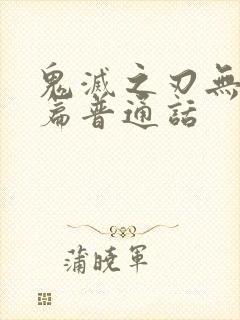 鬼滅之刃無
篇普通話
蒲曉軍